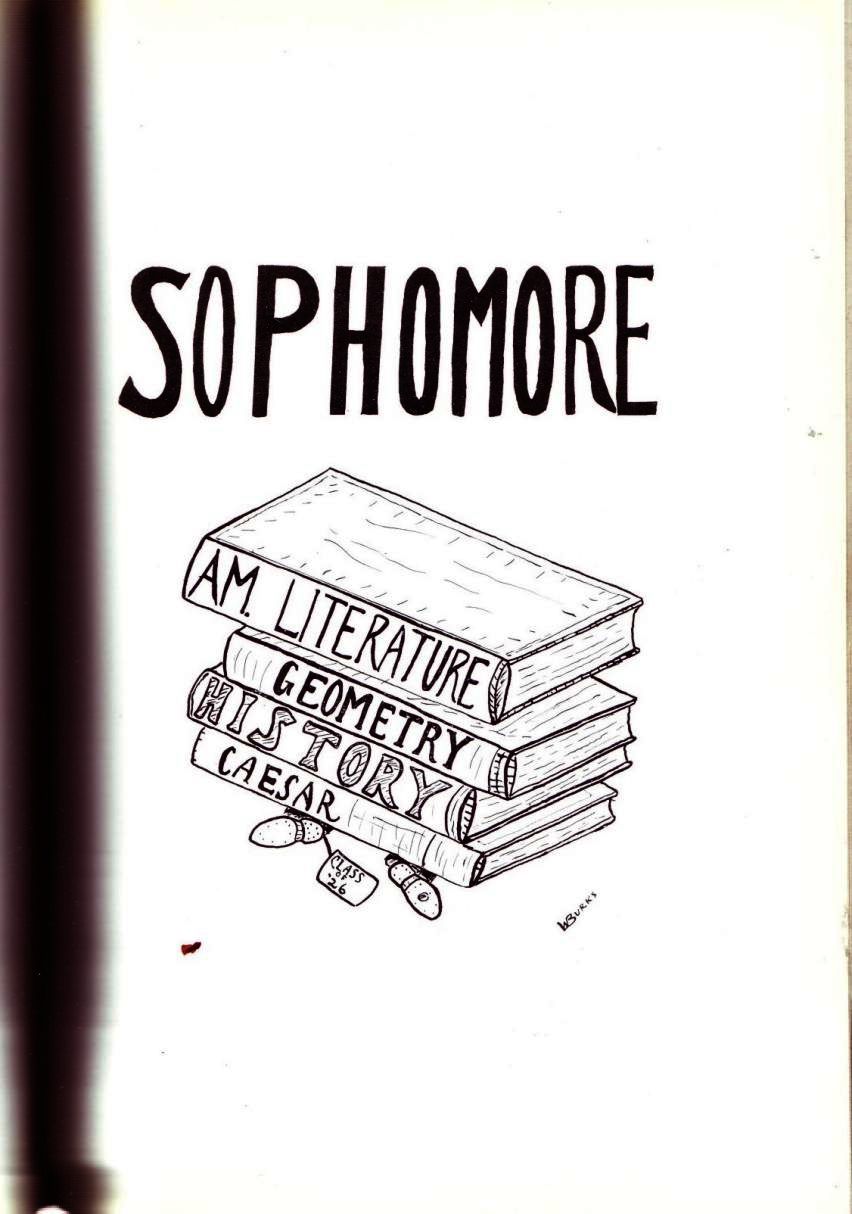 SOPHOMORE
AM. LITERATURE
GEOMETRY
HISTORY
CAESAR
CLASS
OF
26
WBURKS